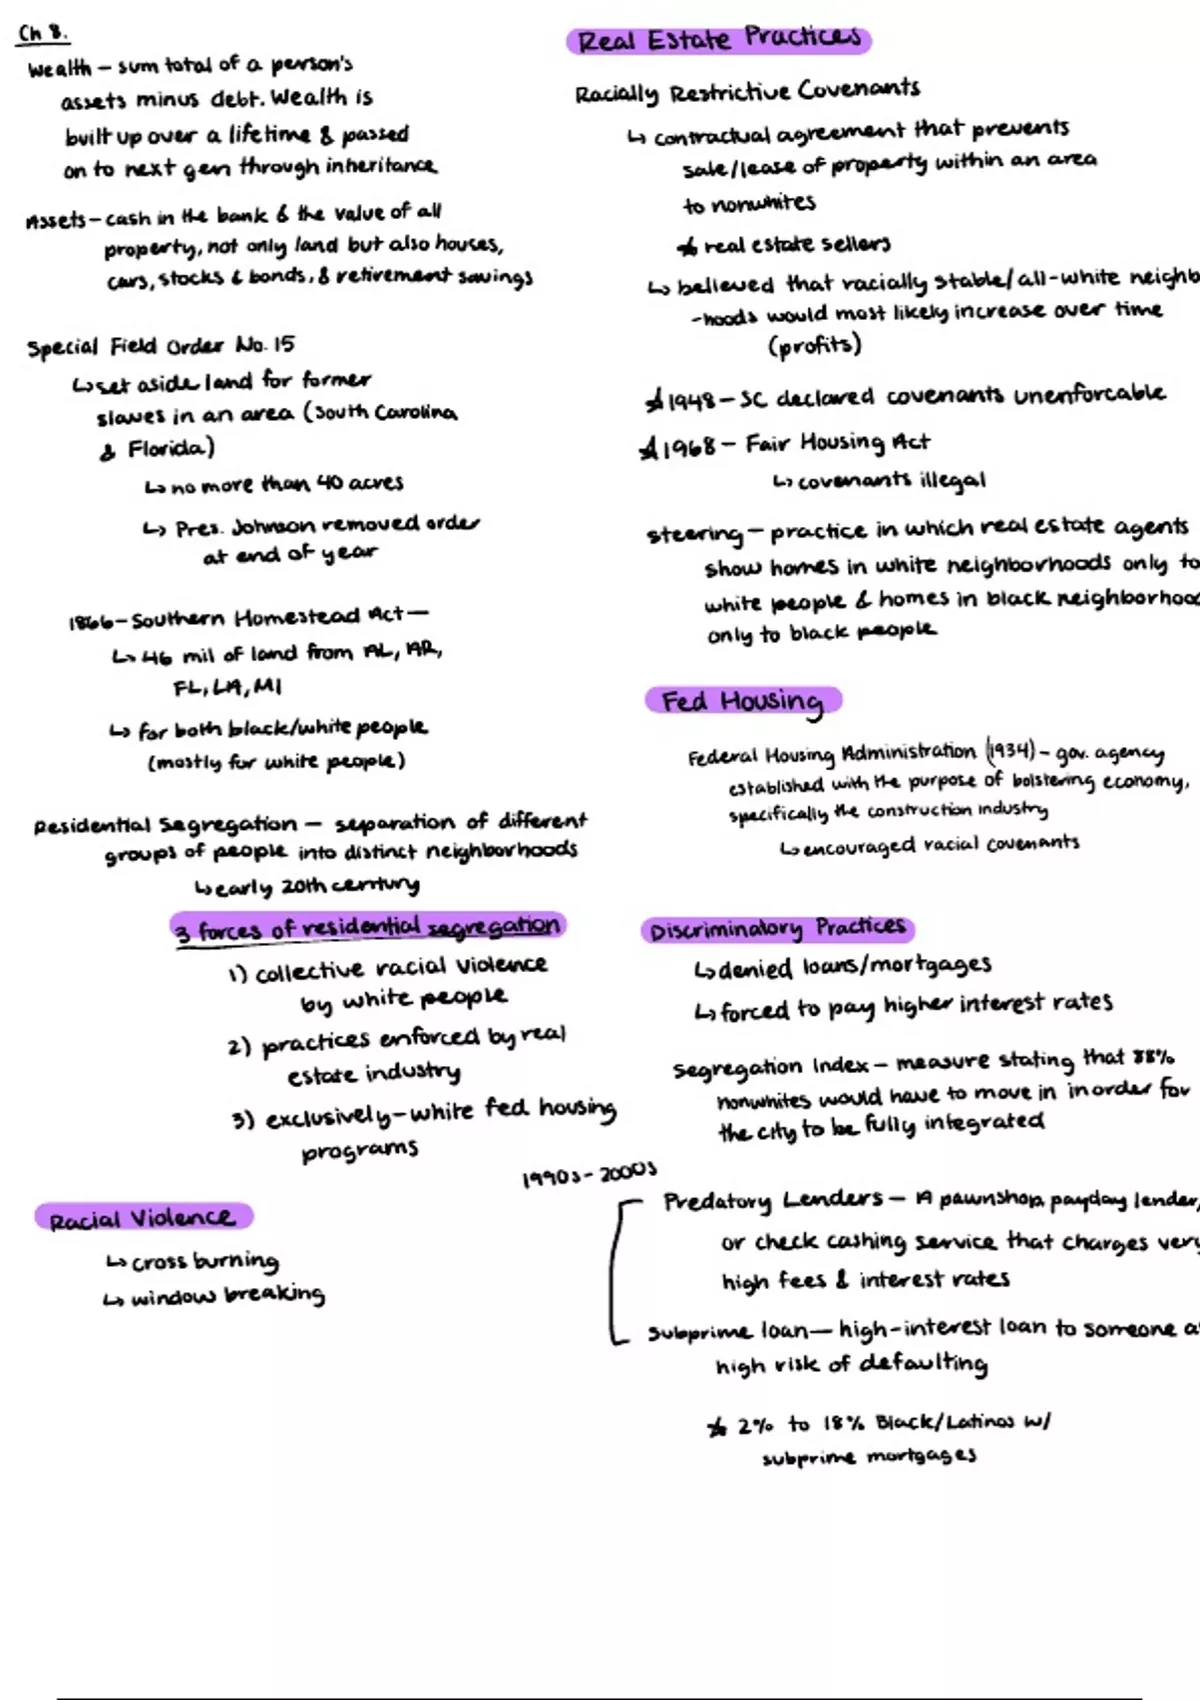 Ch 8.
Wealth – sum total of a person's
assets minus debt. Wealth is
built up over a lifetime & passed
on to next gen through inheritance
Assets – cash in the bank & the value of all
property, not only land but also houses,
cars, stocks & bonds, & retirement savings
Special Field Order No. 15
↳ set aside land for former
slaves in an area (South Carolina
& Florida)
↳ no more than 40 acres
↳ Pres. Johnson removed order
at end of year
1866 – Southern Homestead Act –
↳ 46 mil of land from AL, AR,
FL, LA, MI
↳ for both black/white people
(mostly for white people)
Residential Segregation – separation of different
groups of people into distinct neighborhoods
↳ early 20th century
3 forces of residential segregation
1) collective racial violence
by white people
2) practices enforced by real
estate industry
3) exclusively-white fed housing
programs
Racial Violence
↳ cross burning
↳ window breaking
Real Estate Practices
Racially Restrictive Covenants
↳ contractual agreement that prevents
sale/lease of property within an area
to nonwhites
★ real estate sellers
↳ believed that racially stable/all-white neighb
-hoods would most likely increase over time
(profits)
★ 1948 – SC declared covenants unenforcable
★ 1968 – Fair Housing Act
↳ covenants illegal
steering – practice in which real estate agents
show homes in white neighborhoods only to
white people & homes in black neighborhoo
only to black people
Fed Housing
Federal Housing Administration (1934) – gov. agency
established with the purpose of bolstering economy,
specifically the construction industry
↳ encouraged racial covenants
Discriminatory Practices
↳ denied loans/mortgages
↳ forced to pay higher interest rates
Segregation Index – measure stating that 88%
nonwhites would have to move in in order for
the city to be fully integrated
1990s - 2000s
Predatory Lenders – A pawnshop, payday lender,
or check cashing service that charges very
high fees & interest rates
Subprime loan – high-interest loan to someone a
high risk of defaulting
★ 2% to 18% Black/Latinos w/
subprime mortgages